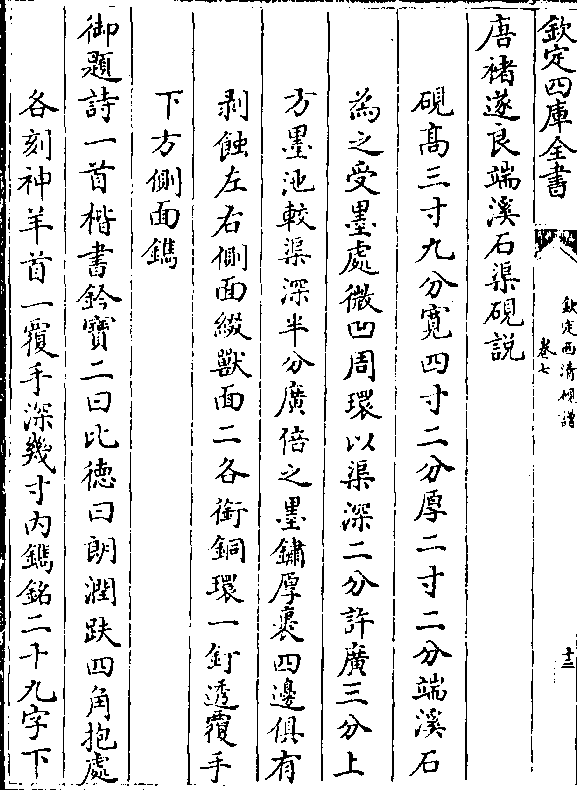 欽定四庫全書
欽定西清硯譜
卷七
十三
唐褚遂良端溪石渠硯説
硯高三寸九分寛四寸二分厚二寸二分端溪石
為之受墨處微凹周環以渠深二分許廣三分上
方墨池較渠深半分廣倍之墨鏽厚裹四邊俱有
剥蝕左右側面綴獸面二各銜銅環一釘透覆手
下方側面鐫
御題詩一首楷書鈐寳二曰比徳曰朗潤趺四角抱處
各刻神羊首一覆手深幾寸内鐫銘二十九字下